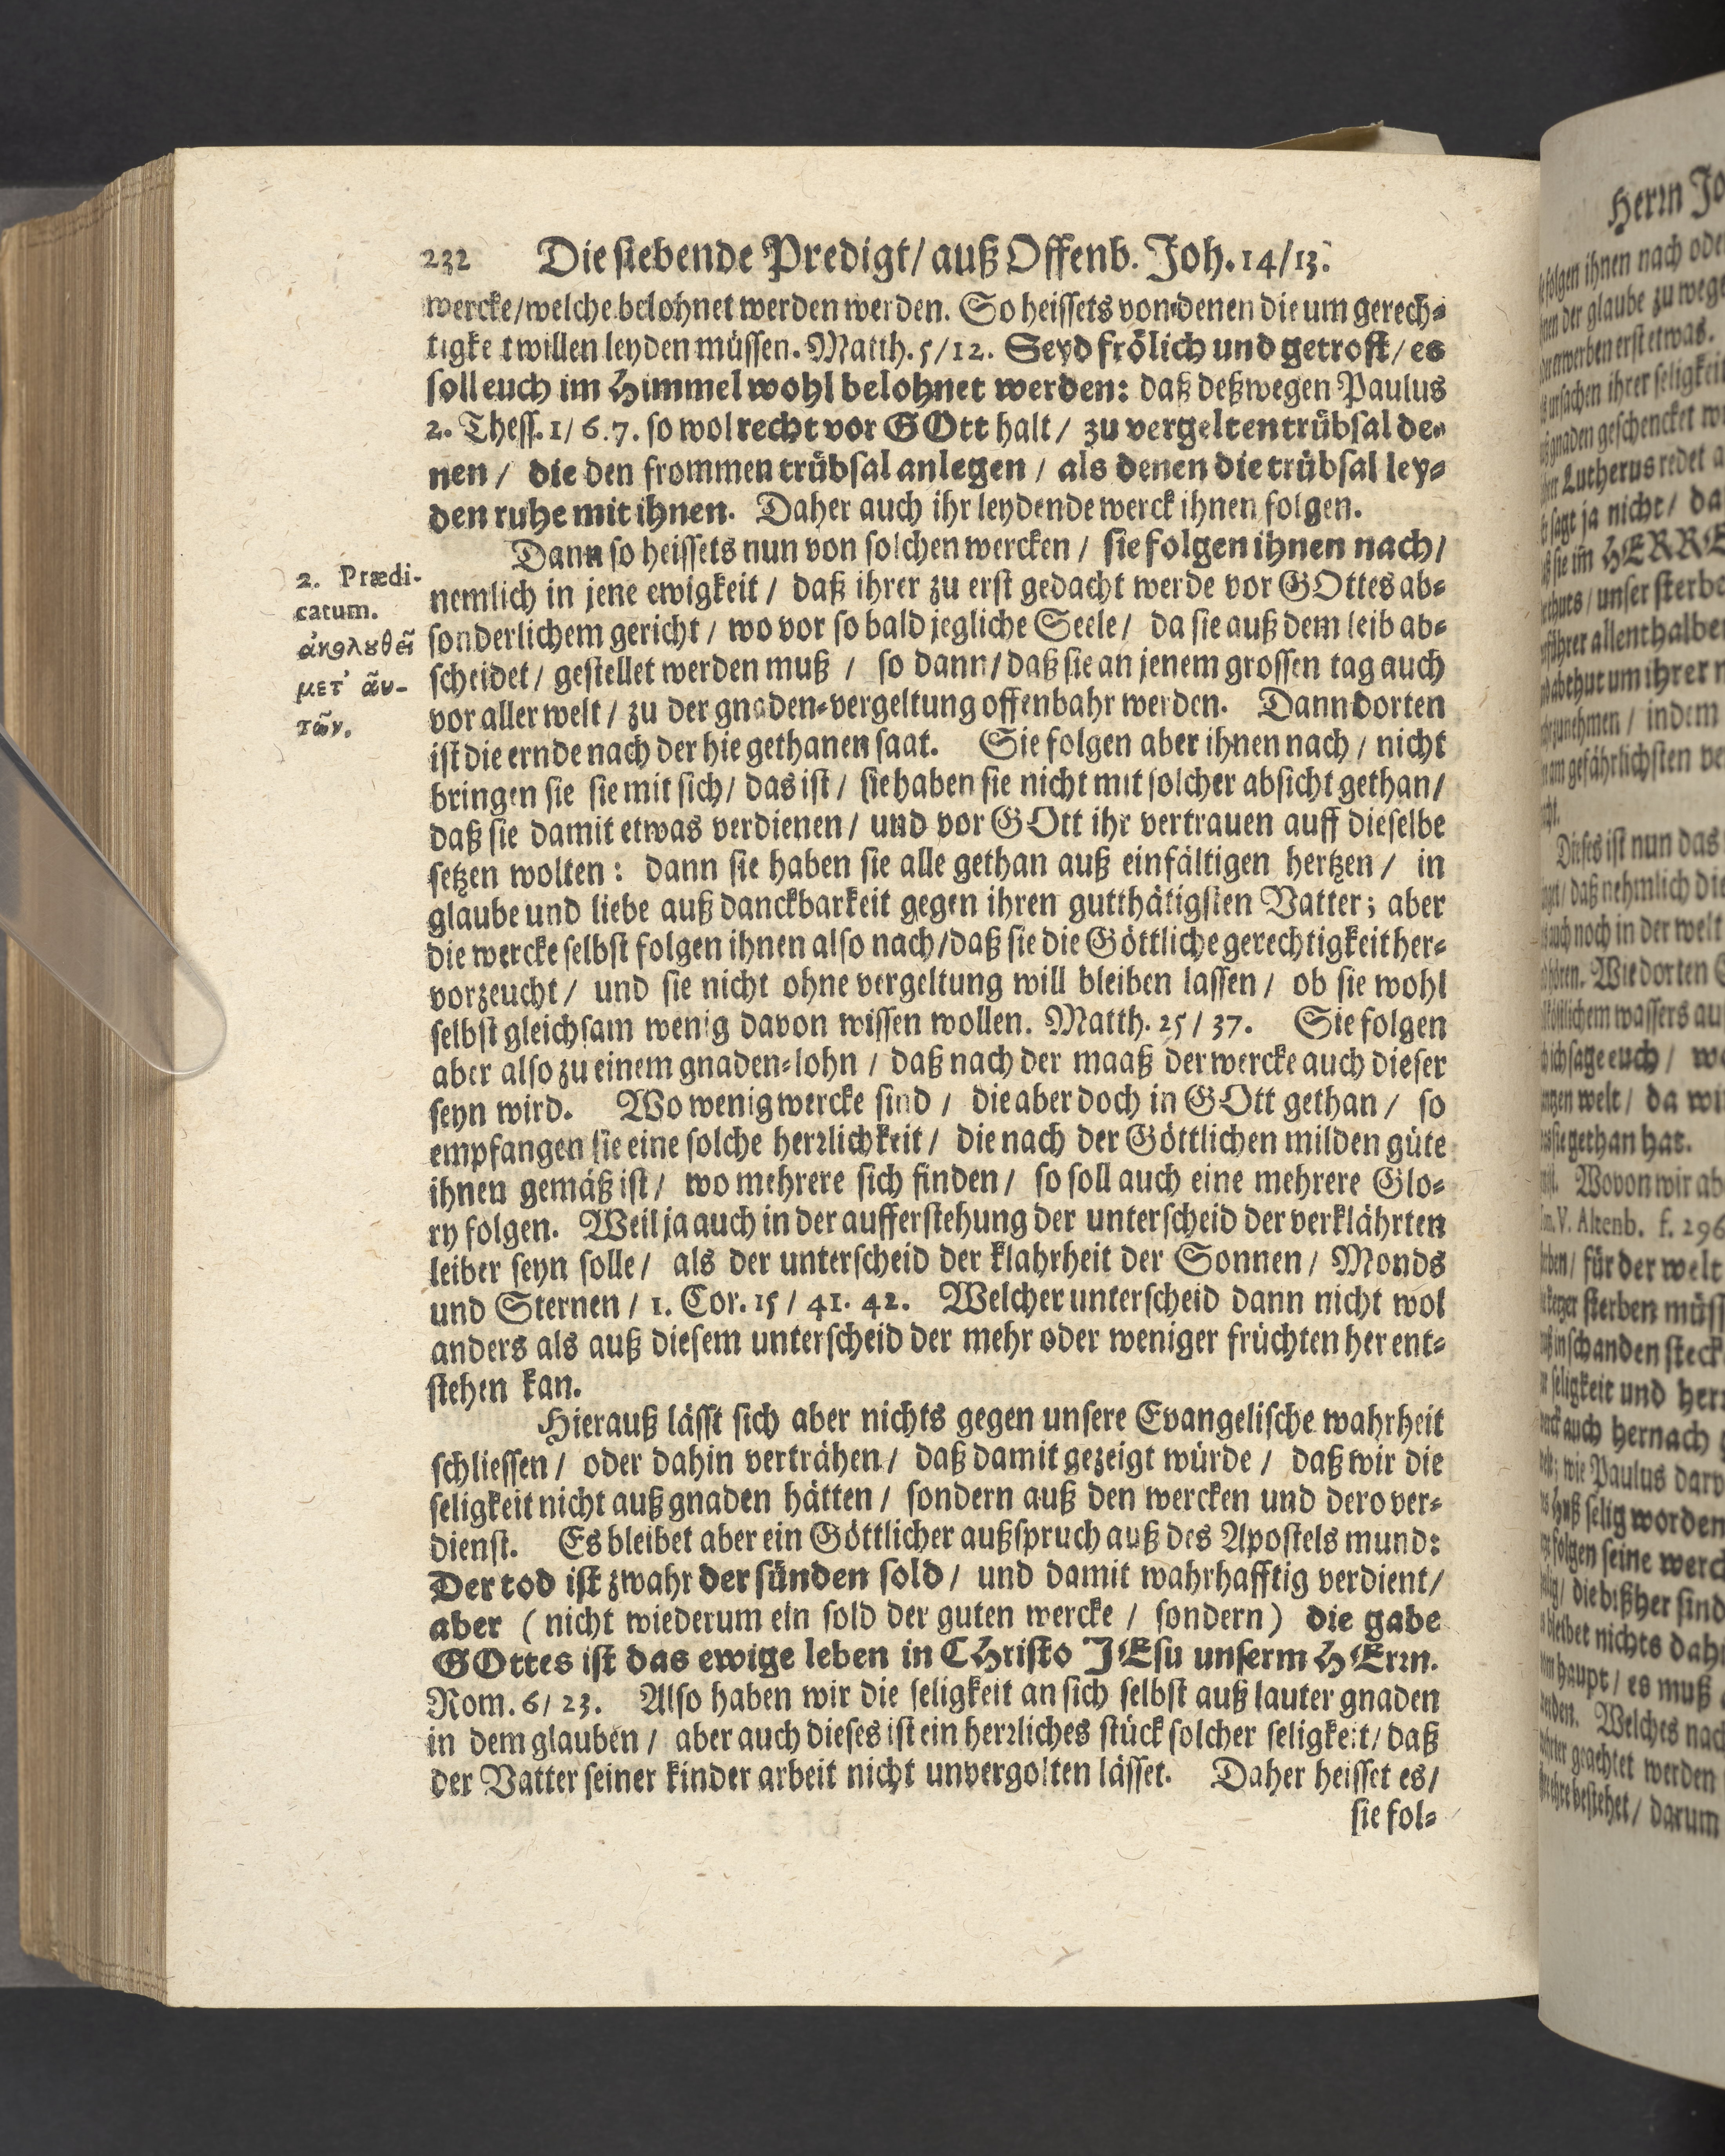 232 Die siebende Predigt/ auß Offenb. Joh. 14/13.
wercke/ welche belohnet werden werden. So heissets von denen die um gerech-
tigke t willen leyden müssen. Matth. 5/12. Seyd frölich und getrost/ es
soll euch im Himmel wohl belohnet werden: daß deßwegen Paulus
2. Thess. 1/ 6. 7. so wol recht vor GOtt halt/ zu vergelten trübsal de-
nen/ die den frommen trübsal anlegen/ als denen die trübsal ley-
den ruhe mit ihnen. Daher auch ihr leydende werck ihnen folgen.
Dann so heissets nun von solchen wercken/ sie folgen ihnen nach/
2. Prædi-
catum.
ἀκολουθεῖ
μετ' ἀυ-
τῶν.
nemlich in jene ewigkeit/ daß ihrer zu erst gedacht werde vor GOttes ab-
sonderlichem gericht/ wo vor so bald jegliche Seele/ da sie auß dem leib ab-
scheidet/ gestellet werden muß/ so dann/ daß sie an jenem grossen tag auch
vor aller welt/ zu der gnaden-vergeltung offenbahr werden. Dann dorten
ist die ernde nach der hie gethanen saat. Sie folgen aber ihnen nach/ nicht
bringen sie sie mit sich/ das ist/ sie haben sie nicht mit solcher absicht gethan/
daß sie damit etwas verdienen/ und vor GOtt ihr vertrauen auff dieselbe
setzen wolten: dann sie haben sie alle gethan auß einfältigen hertzen/ in
glaube und liebe auß danckbarkeit gegen ihren gutthätigsten Vatter; aber
die wercke selbst folgen ihnen also nach/ daß sie die Göttliche gerechtigkeit her-
vorzeucht/ und sie nicht ohne vergeltung will bleiben lassen/ ob sie wohl
selbst gleichsam wenig davon wissen wollen. Matth. 25/ 37. Sie folgen
aber also zu einem gnaden-lohn/ daß nach der maaß der wercke auch dieser
seyn wird. Wo wenig wercke sind/ die aber doch in GOtt gethan/ so
empfangen sie eine solche herrlichkeit/ die nach der Göttlichen milden güte
ihnen gemäß ist/ wo mehrere sich finden/ so soll auch eine mehrere Glo-
ry folgen. Weil ja auch in der aufferstehung der unterscheid der verklährten
leiber seyn solle/ als der unterscheid der klahrheit der Sonnen/ Monds
und Sternen/ 1. Cor. 15/ 41. 42. Welcher unterscheid dann nicht wol
anders als auß diesem unterscheid der mehr oder weniger früchten her ent-
stehen kan.
Hierauß lässt sich aber nichts gegen unsere Evangelische wahrheit
schliessen/ oder dahin verträhen/ daß damit gezeigt würde/ daß wir die
seligkeit nicht auß gnaden hätten/ sondern auß den wercken und dero ver-
dienst. Es bleibet aber ein Göttlicher außspruch auß des Apostels mund:
Der tod ist zwahr der sünden sold/ und damit wahrhafftig verdient/
aber (nicht wiederum ein sold der guten wercke/ sondern) die gabe
GOttes ist das ewige leben in CHristo JEsu unserm HErrn.
Rom. 6/ 23. Also haben wir die seligkeit an sich selbst auß lauter gnaden
in dem glauben/ aber auch dieses ist ein herrliches stück solcher seligkeit/ daß
der Vatter seiner kinder arbeit nicht unvergolten lässet. Daher heisset es/
sie fol-
Herrn Jo
folgen ihnen nach ode
der glaube zu wege
erwerben erst etwas.
ursachen ihrer seligkeit
gnaden geschencket
Lutherus redet
sagt ja nicht/ da
sie im HERRE
unser sterbe
allenthalben
um ihrer
indem
gefährlichsten
Dieses ist nun das
daß nehmlich die
auch noch in der welt
Wie dorten
wassers
ich sage euch/
welt/ da
sie gethan hat.
Wovon wir ab
V. Altenb. f. 296
für der welt
sterben
in schanden
seligkeit und
auch hernach
wie Paulus
Huß selig worden
folgen seine
die bißher sind
bleibet nichts
haupt/ es muß
Welches nach
geachtet werden
bestehet/ darum